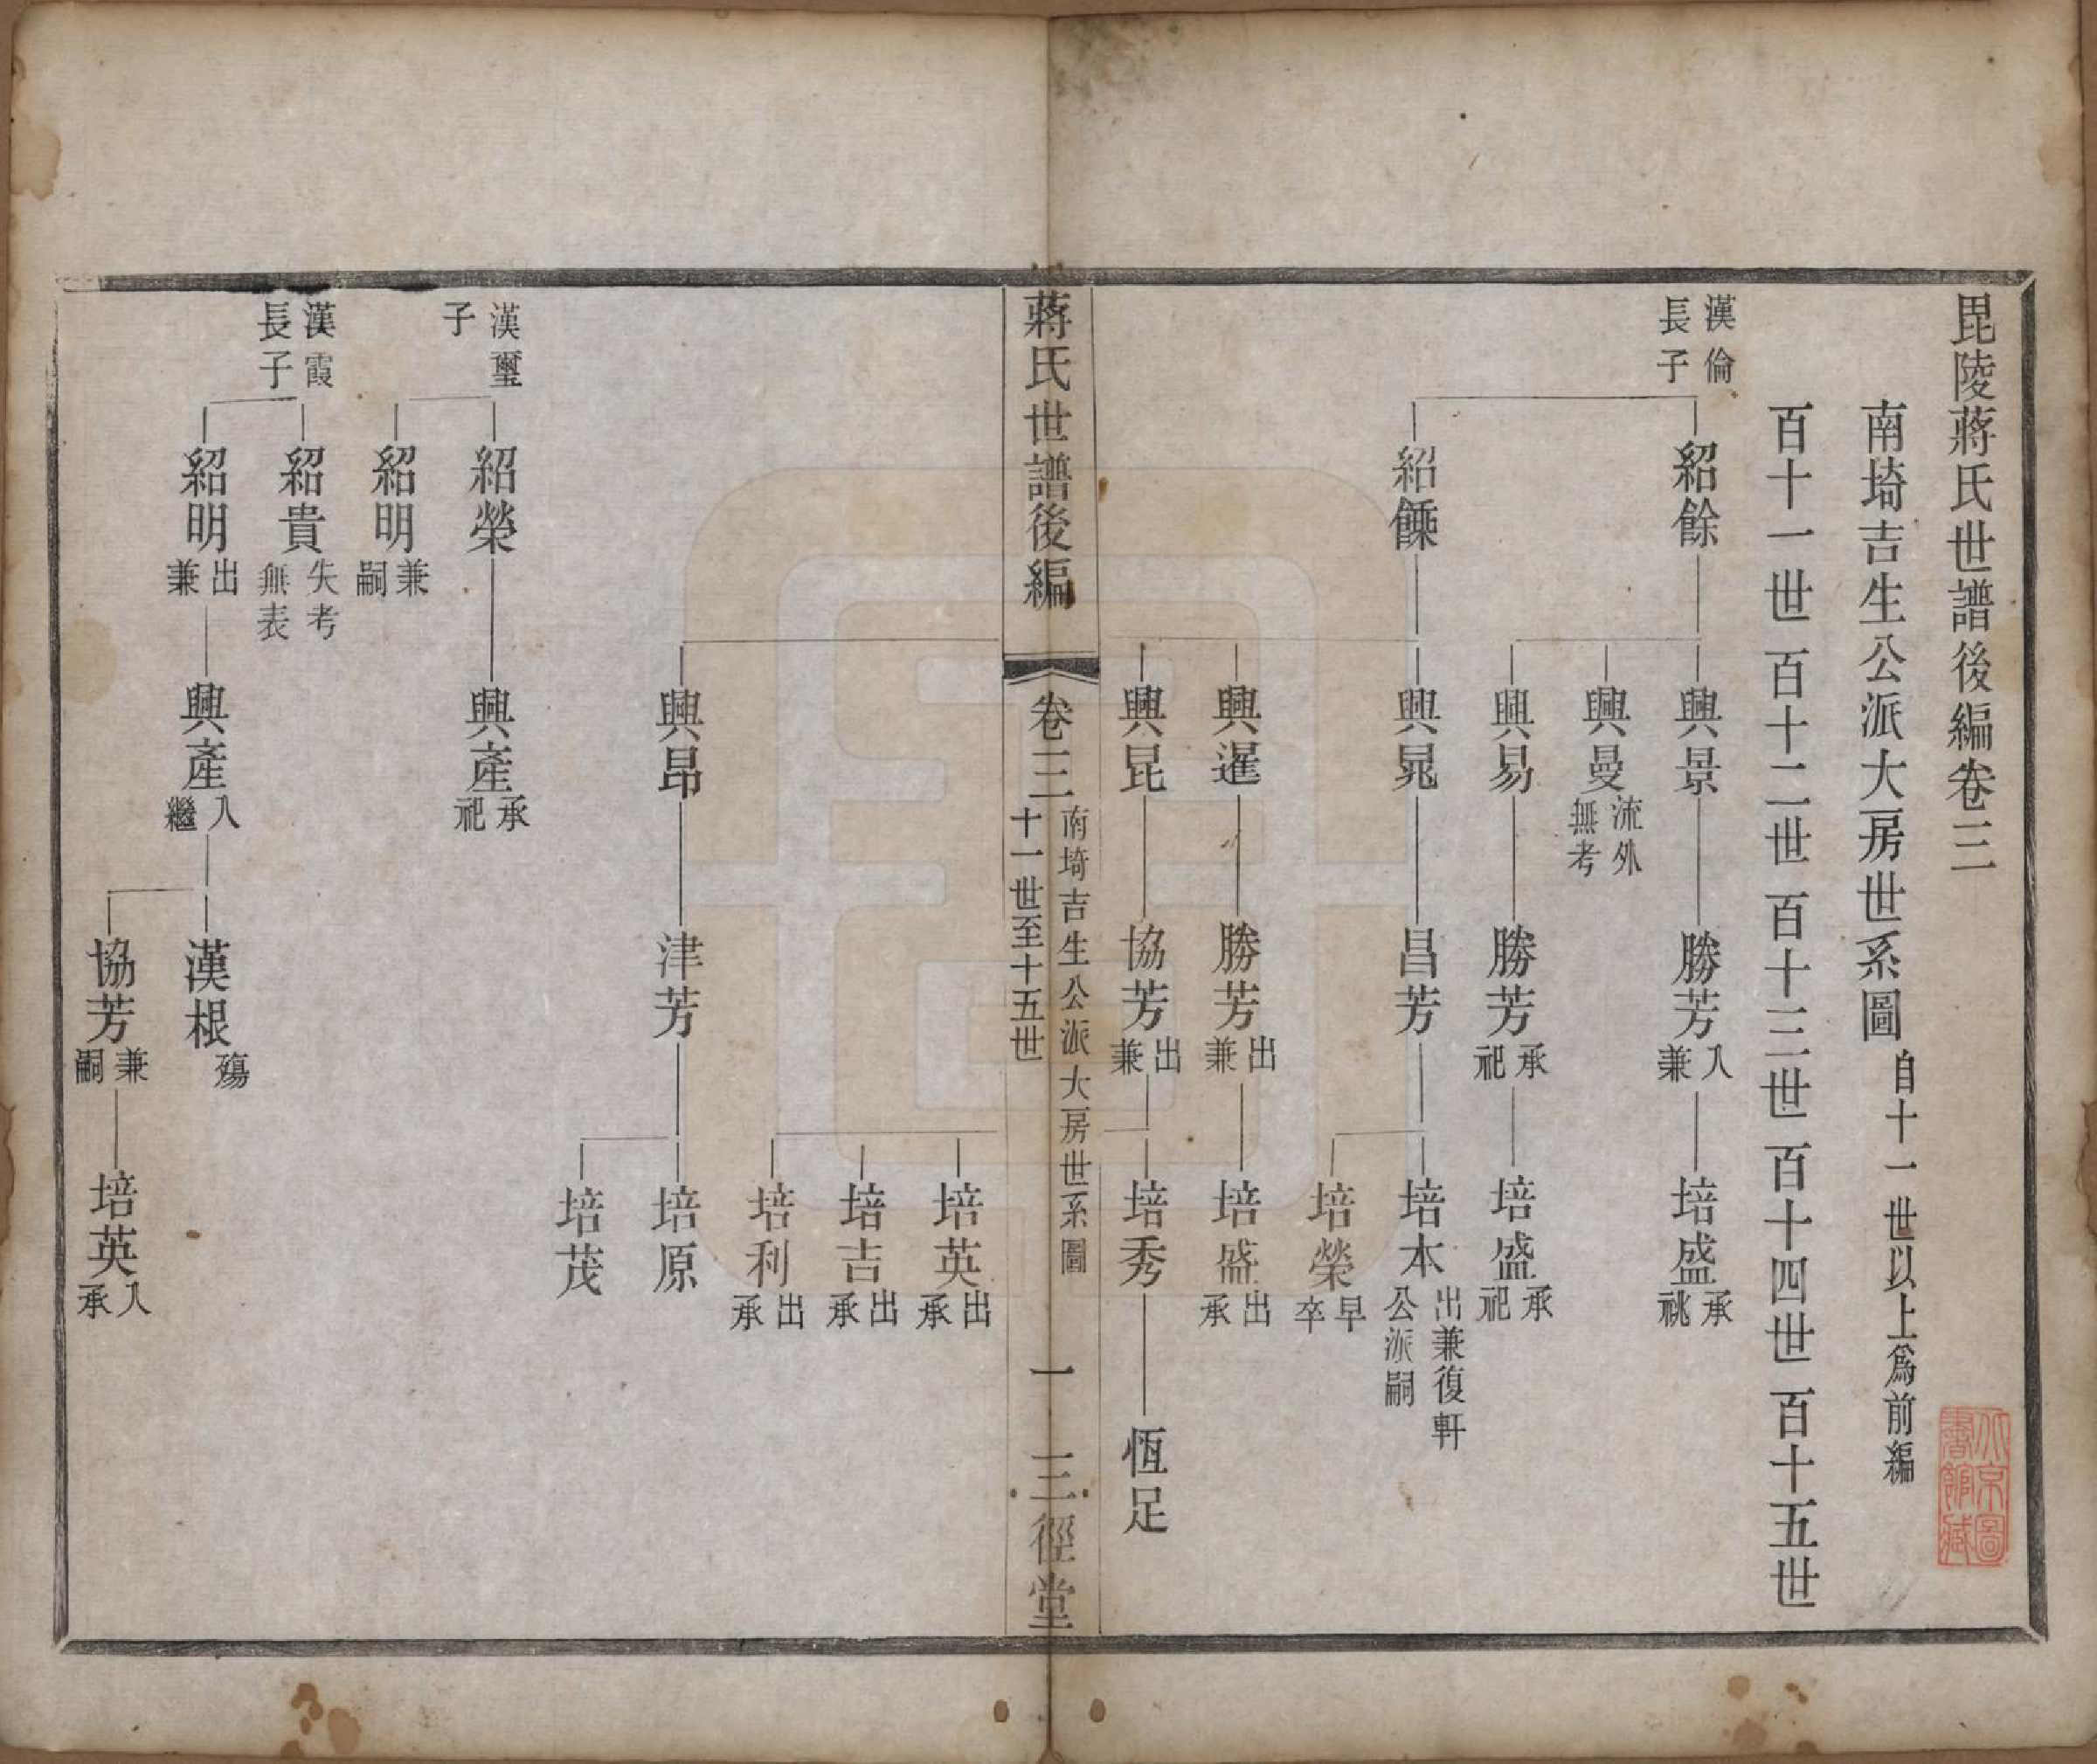 毘陵蔣氏世譜後編卷三
南埼吉生公派大房世系圖 自十一世以上爲前編
百十一世 百十二世 百十三世 百十四世 百十五世
漢倫
長子
紹餘
興景
勝芳 入兼
培盛 承祧
興曼 流外無考
興易
勝芳 承祀
培盛 承祀
紹
興晁
昌芳
培本 出兼復軒公派嗣
培榮 早卒
興暹
勝芳 出兼
培盛 出承
興昆
協芳 出兼
培秀
恆足
蔣氏世譜後編
卷三
南埼吉生公派大房世系圖
十一世至十五世
一
三徑堂
培英 出承
培吉 出承
培利 出承
興昂
津芳
培原
培茂
漢璽
子
紹榮
興產 承祀
紹明 兼嗣
漢霞
長子
紹貴 失考無表
紹明 出兼
興產 入繼
漢根 殤
協芳 兼嗣
培英 入承
北京圖
書館藏